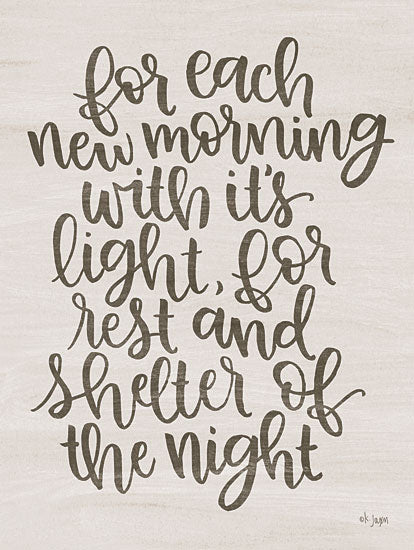 for each
new morning
with it's
light, for
rest and
shelter of
the night
©K. Jaxn